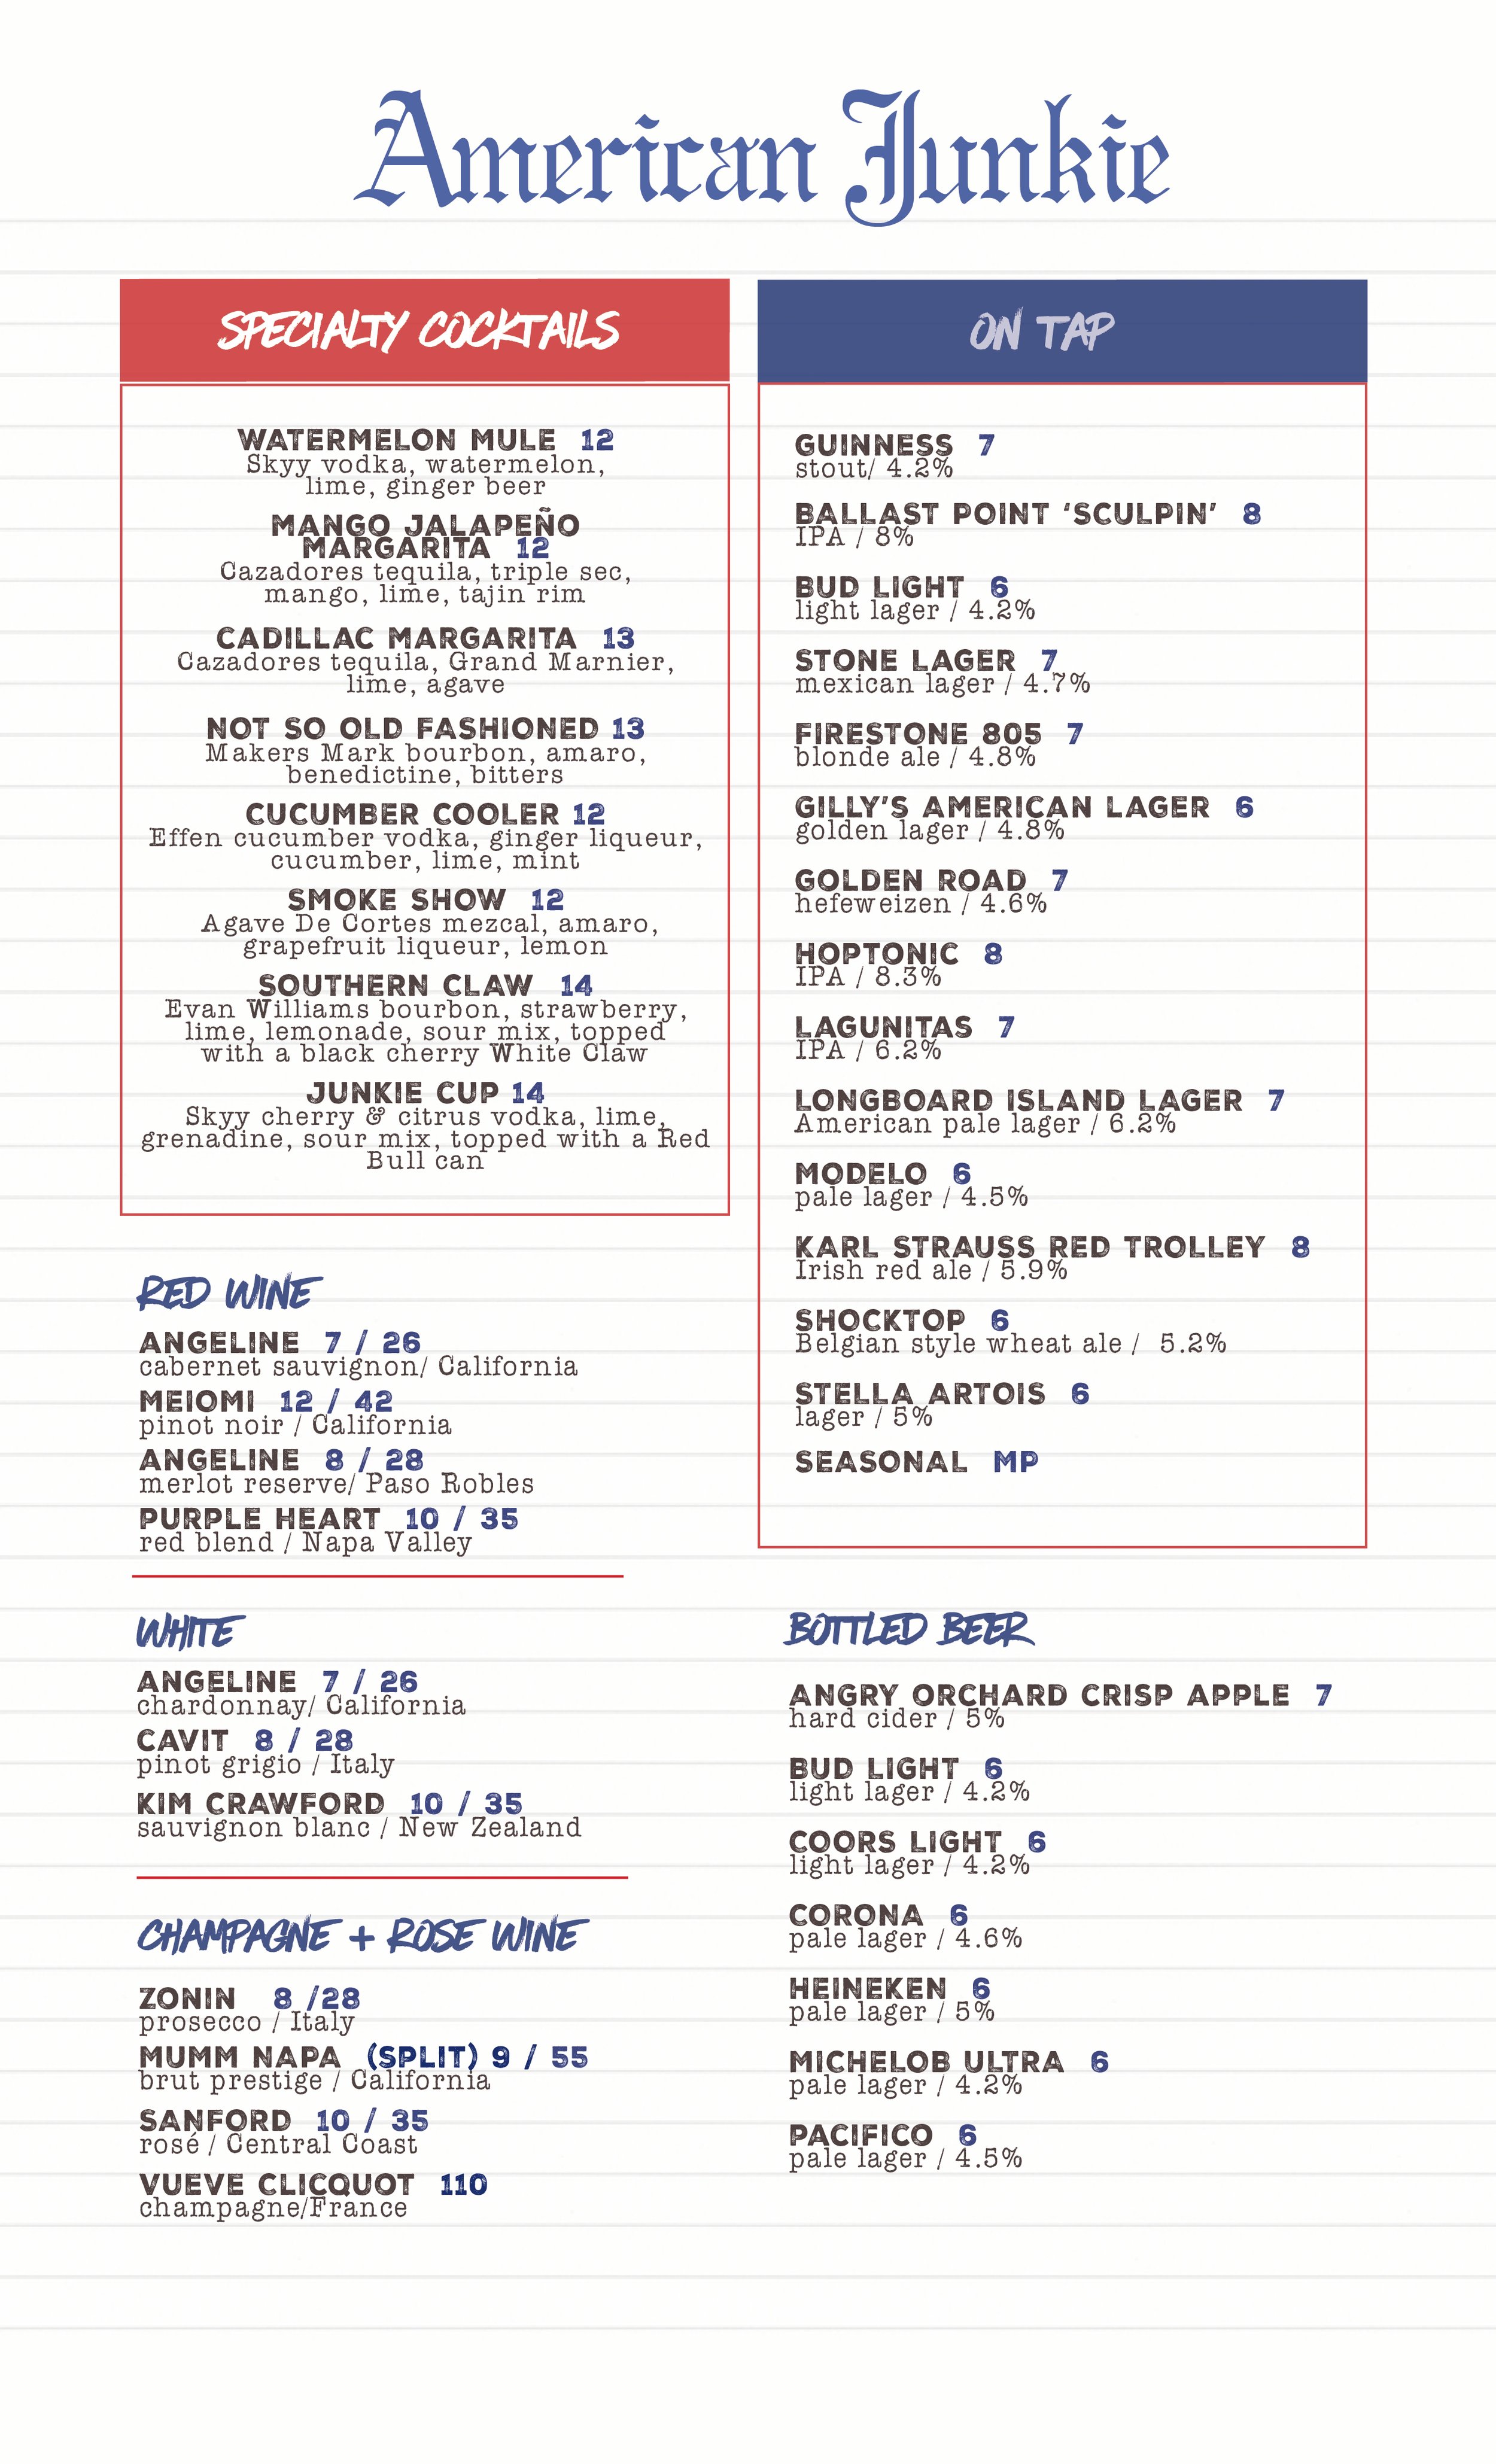 American Junkie
SPECIALTY COCKTAILS
WATERMELON MULE 12
Skyy vodka, watermelon,
lime, ginger beer
MANGO JALAPEÑO
MARGARITA 12
Cazadores tequila, triple sec,
mango, lime, tajin rim
CADILLAC MARGARITA 13
Cazadores tequila, Grand Marnier,
lime, agave
NOT SO OLD FASHIONED 13
Makers Mark bourbon, amaro,
benedictine, bitters
CUCUMBER COOLER 12
Effen cucumber vodka, ginger liqueur,
cucumber, lime, mint
SMOKE SHOW 12
Agave De Cortes mezcal, amaro,
grapefruit liqueur, lemon
SOUTHERN CLAW 14
Evan Williams bourbon, strawberry,
lime, lemonade, sour mix, topped
with a black cherry White Claw
JUNKIE CUP 14
Skyy cherry & citrus vodka, lime,
grenadine, sour mix, topped with a Red
Bull can
RED WINE
ANGELINE 7 / 26
cabernet sauvignon/ California
MEIOMI 12 / 42
pinot noir / California
ANGELINE 8 / 28
merlot reserve/ Paso Robles
PURPLE HEART 10 / 35
red blend / Napa Valley
WHITE
ANGELINE 7 / 26
chardonnay/ California
CAVIT 8 / 28
pinot grigio / Italy
KIM CRAWFORD 10 / 35
sauvignon blanc / New Zealand
CHAMPAGNE + ROSE WINE
ZONIN 8 /28
prosecco / Italy
MUMM NAPA (SPLIT) 9 / 55
brut prestige / California
SANFORD 10 / 35
rosé / Central Coast
VUEVE CLICQUOT 110
champagne/France
ON TAP
GUINNESS 7
stout/ 4.2%
BALLAST POINT ‘SCULPIN’ 8
IPA / 8%
BUD LIGHT 6
light lager / 4.2%
STONE LAGER 7
mexican lager / 4.7%
FIRESTONE 805 7
blonde ale / 4.8%
GILLY’S AMERICAN LAGER 6
golden lager / 4.8%
GOLDEN ROAD 7
hefeweizen / 4.6%
HOPTONIC 8
IPA / 8.3%
LAGUNITAS 7
IPA / 6.2%
LONGBOARD ISLAND LAGER 7
American pale lager / 6.2%
MODELO 6
pale lager / 4.5%
KARL STRAUSS RED TROLLEY 8
Irish red ale / 5.9%
SHOCKTOP 6
Belgian style wheat ale / 5.2%
STELLA ARTOIS 6
lager / 5%
SEASONAL MP
BOTTLED BEER
ANGRY ORCHARD CRISP APPLE 7
hard cider / 5%
BUD LIGHT 6
light lager / 4.2%
COORS LIGHT 6
light lager / 4.2%
CORONA 6
pale lager / 4.6%
HEINEKEN 6
pale lager / 5%
MICHELOB ULTRA 6
pale lager / 4.2%
PACIFICO 6
pale lager / 4.5%